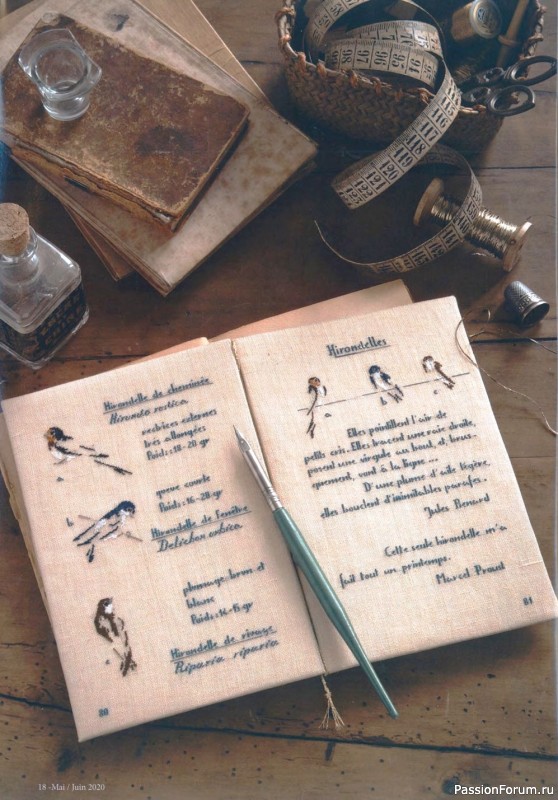 Hirondelle de cheminée
Hirundo rustica
rectrices externes
très allongées
Poids : 18-20 gr
queue courte
Poids : 16-20 gr
b
Hirondelle de fenêtre
Delichon urbica
plumage brun et
blanc
Poids : 14-15 gr
Hirondelle de rivage
Riparia riparia
80
Hirondelles
Elles pointillent l'air de
petits cris. Elles tracent une raie droite,
posent une virgule au bout, et, brus-
quement, vont à la ligne...
D'une plume d'aile légère,
elles bouclent d'inimitables parafes.
Jules Renard
Cette seule hirondelle m'a
fait tout un printemps.
Marcel Proust
81
115
116
117
118
119
120
121
18 -Mai / Juin 2020
PassionForum.ru